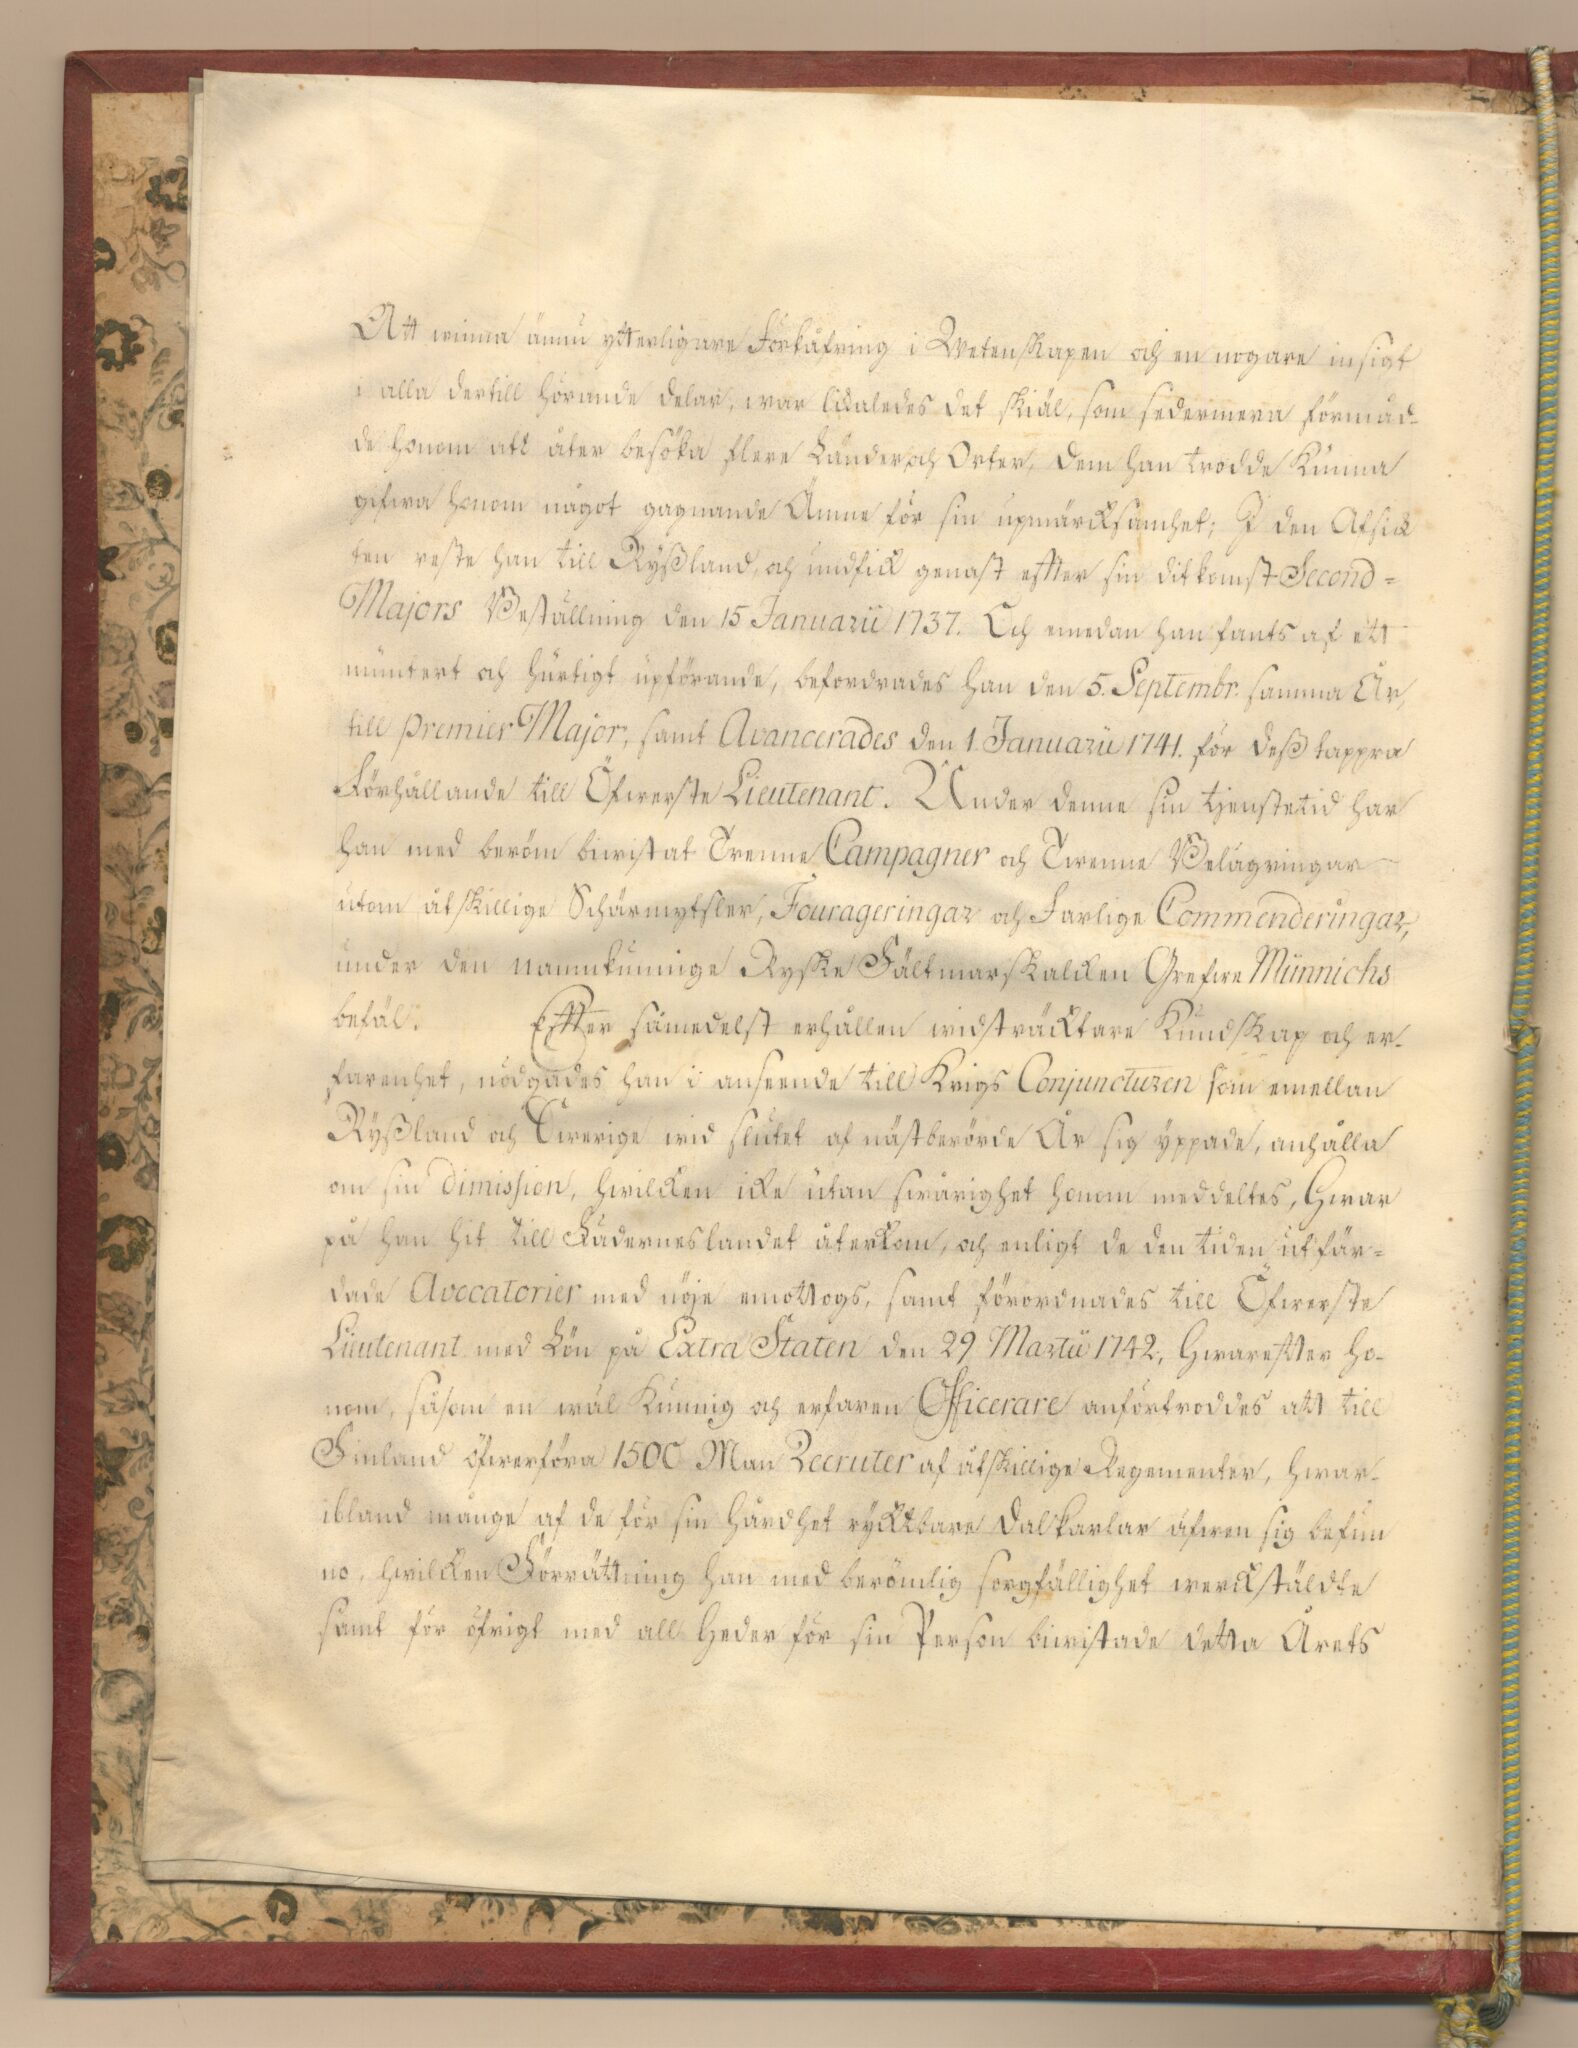 Att winna ännu ytterligare Förkåfring i Wetenskapen och en nogare insigt
i alla dertill hörande delar, war likaledes det skiäl, som sedermera förmåd-
de honom att åter besöka flere Länder och Orter, dem han trodde kunna
gifwa honom något gagnande Ämne för sin upmärcksamhet; I den Afsick
ten reste han till Ryßland, och undfick genast efter sin ditkomst Second=
Majors Beställning den 15 Januarii 1737. Och emedan han fants af ett
muntert och hurtigt upförande, befordrades han den 5. Septembr. samma År,
till Premier Major, samt Avancerades den 1. Januarii 1741. för deß tappra
Förhållande till Öfwerste Lieutenant. Under denne sin tjenstetid har
han med beröm biwistat Trenne Campagner och Twenne Belägringar
utom åtskillige Schärmytsler, Fourageringar och Farlige Commenderingar,
under den namnkunnige Ryske Fältmarskalcken Grefwe Münnichs
befäl. Efter såmedelst erhållen widsträcktare Kundskap och er-
farenhet, nödgades han i anseende till Krigs Conjuncturen som emellan
Ryßland och Swerige wid slutet af nästberörde År sig yppade, anhålla
om sin dimission, hwilcken icke utan swårighet honom meddeltes, Hwar
på han hit till Fäderneslandet återkom, och enligt de den tiden utfär=
dade Avocatorier med nöje emottogs, samt förordnades till Öfwerste
Lieutenant med Lön på Extra Staten den 29 Martii 1742, Hwarefter ho-
nom, såsom en wäl Kunnig och erfaren Officerare anförtroddes att till
Finland öfwerföra 1500 Man Recruter af åtskillige Regementer, hwar-
ibland månge af de för sin Hårdhet ryktbare Dalkarlar äfwen sig befun
no, hwilcken Förrättning han med berömlig sorgfällighet werckstäldte
samt för öfrigt med all Heder för sin Person biwistade detta Årets